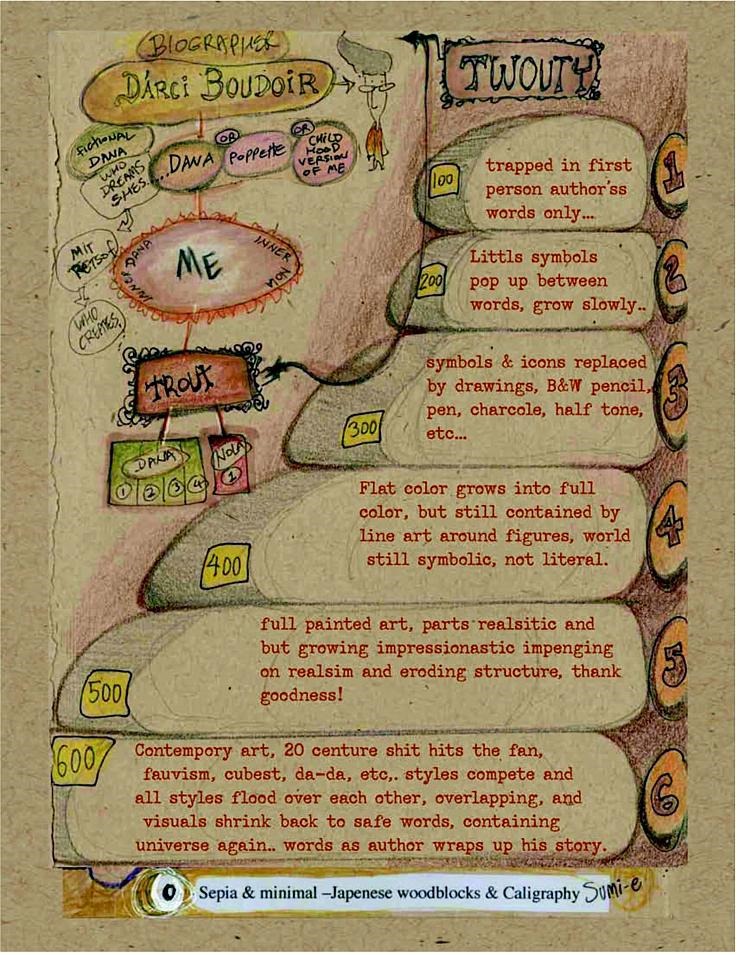 BIOGRAPHER
DARCI BOUDOIR
FICTIONAL
DANA
WHO
DREAMS
SHES.
...DANA
OR
POPPETTE
OR
CHILD
HOOD
VERSION
OF ME
ME
INNER DANA
INNER NOLA
MIT
WHO
CREATES
TROUT
DANA
1 2 3 4
NOLA
1
TWOUTY
100
trapped in first
person author'ss
words only...
1
200
Littls symbols
pop up between
words, grow slowly..
2
300
symbols & icons replaced
by drawings, B&W pencil,
pen, charcole, half tone,
etc...
3
400
Flat color grows into full
color, but still contained by
line art around figures, world
still symbolic, not literal.
4
500
full painted art, parts realsitic and
but growing impressionastic impenging
on realsim and eroding structure, thank
goodness!
5
600
Contempory art, 20 centure shit hits the fan,
fauvism, cubest, da-da, etc,. styles compete and
all styles flood over each other, overlapping, and
visuals shrink back to safe words, containing
universe again.. words as author wraps up his story.
6
0
Sepia & minimal –Japenese woodblocks & Caligraphy Sumi-e